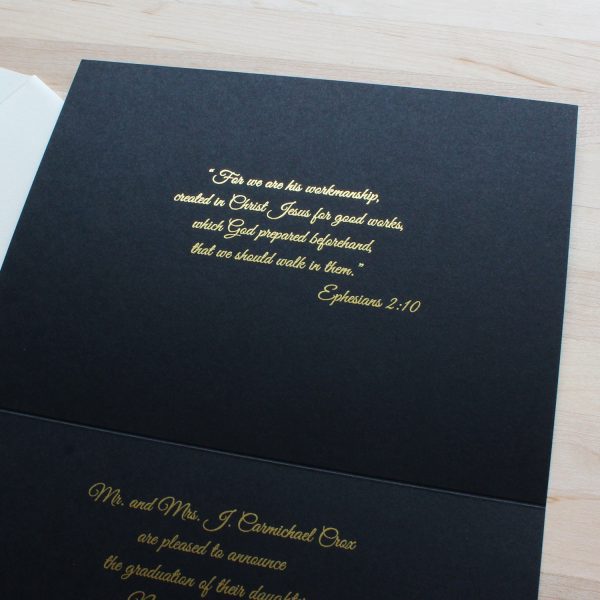 “For we are his workmanship,
created in Christ Jesus for good works,
which God prepared beforehand,
that we should walk in them.”
Ephesians 2:10
Mr. and Mrs. J. Carmichael Crox
are pleased to announce
the graduation of their